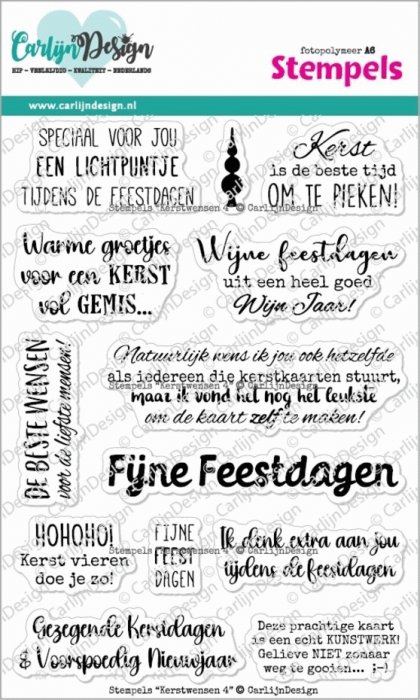 CarlijnDesign
HIP - VEELZIJDIG - KWALITEIT - NEDERLANDS
fotopolymeer A6
Stempels
www.carlijndesign.nl
SPECIAAL VOOR JOU
EEN LICHTPUNTJE
TIJDENS DE FEESTDAGEN
Kerst
is de beste tijd
OM TE PIEKEN!
Stempels "Kerstwensen 4" © CarlijnDesign
Warme groetjes
voor een KERST
vol GEMIS...
Wijne feestdagen
uit een heel goed
Wijn Jaar!
DE BESTE WENSEN
voor de liefste mensen!
Natuurlijk wens ik jou ook hetzelfde
als iedereen die kerstkaarten stuurt,
maar ik vond het nog het leukste
om de kaart zelf te maken!
Stempels "Kerstwensen 4" © CarlijnDesign
Fijne Feestdagen
HOHOHO!
Kerst vieren
doe je zo!
FIJNE
FEEST
DAGEN
Ik denk extra aan jou
tijdens de feestdagen
Stempels "Kerstwensen 4" © CarlijnDesign
Gezegende Kerstdagen
& Voorspoedig Nieuwjaar
Deze prachtige kaart
is een echt KUNSTWERK!
Gelieve NIET zomaar
weg te gooien... ;-)
Stempels "Kerstwensen 4" © CarlijnDesign